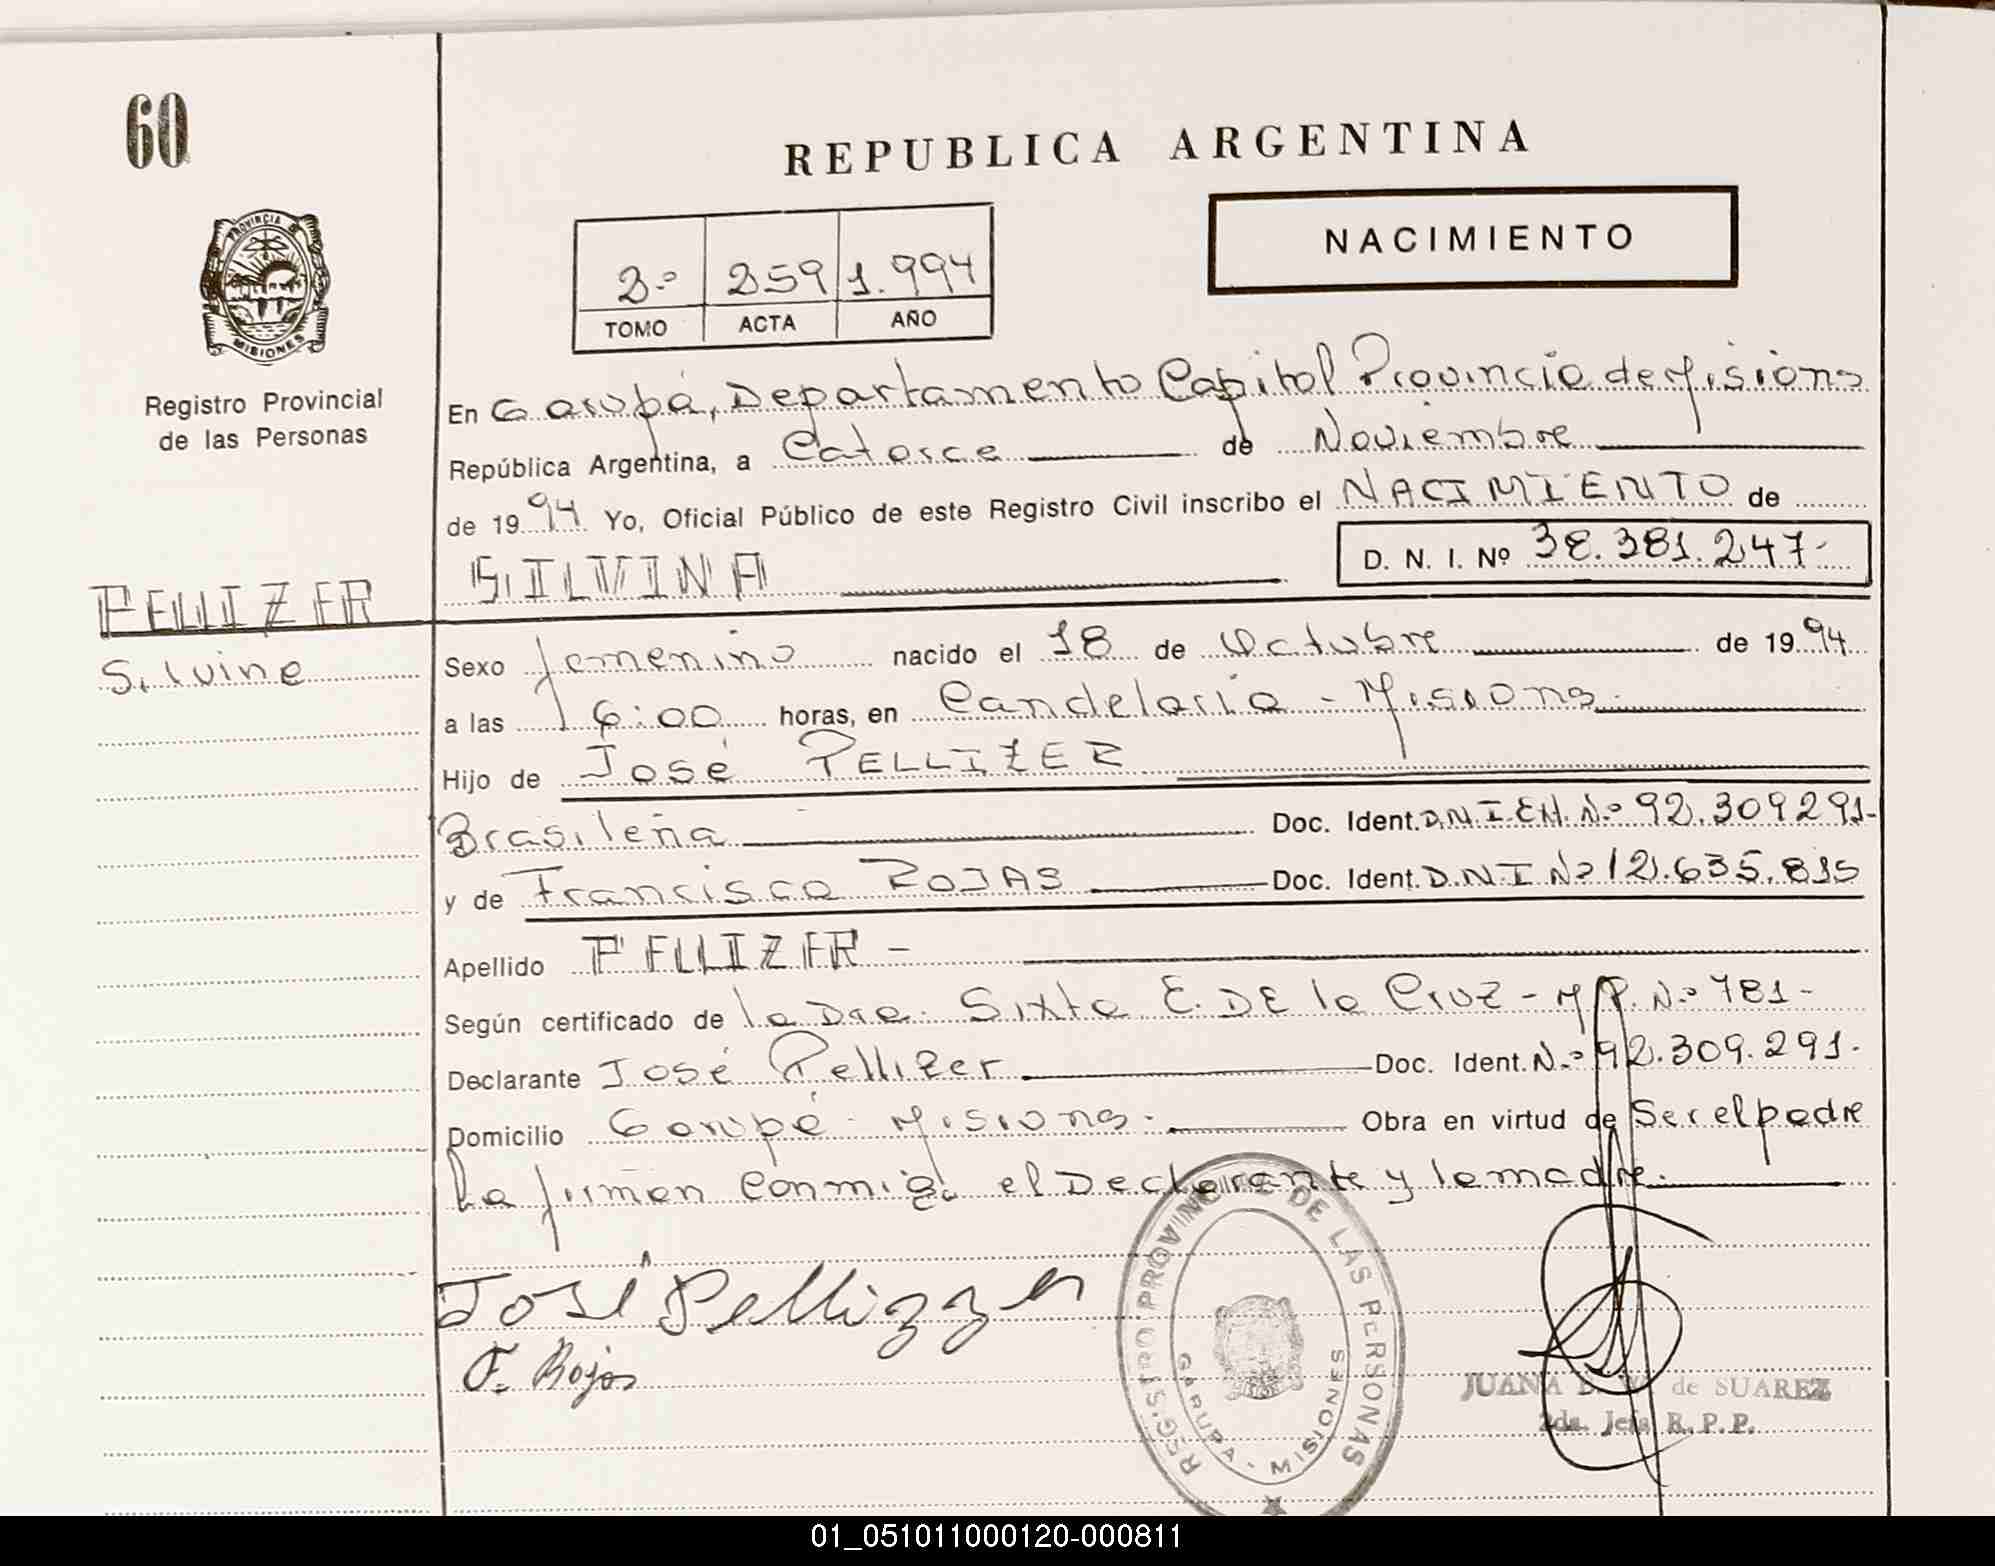 60
REPUBLICA ARGENTINA
NACIMIENTO
2º 259 1.994
TOMO ACTA AÑO
PROVINCIA DE MISIONES
Registro Provincial
de las Personas
En Garupá, Departamento Capital Provincia de Misiones
República Argentina, a Catorce de Noviembre
de 1994 Yo, Oficial Público de este Registro Civil inscribo el NACIMIENTO de
SILVINA D. N. I. Nº 38.381.247-
PELLIZER
Silvina
Sexo femenino nacido el 18 de Octubre de 1994
a las 16:00 horas, en Candelaria - Misiones.
Hijo de José PELLIZER
Brasileña Doc. Ident. D.N.I.EX. Nº 92.309291-
y de Francisca ROJAS Doc. Ident. D.N.I Nº 12.635.815
Apellido PELLIZER -
Según certificado de la Dra. Sixta E. DE la Cruz - M.P. Nº 781-
Declarante José Pellizer Doc. Ident. Nº 92.309.291-
Domicilio Garupá - Misiones. Obra en virtud de Ser el padre
La firman conmigo el Declarante y la madre.
José Pellizzer
F. Rojas
REGISTRO PROVINCIAL DE LAS PERSONAS
GARUPA - MISIONES
JUANA de SUAREZ
2da. Jefa R. P. P.
01_051011000120-000811